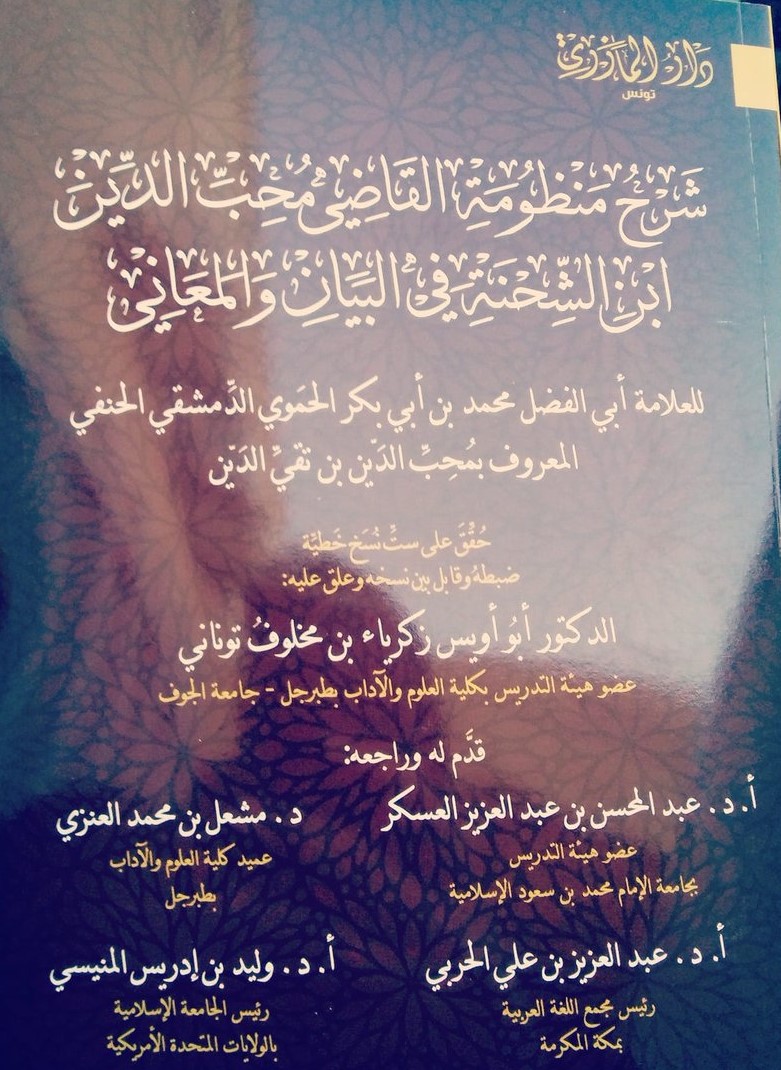 دَارُ المَازَرِيّ
تونس
شَرْحُ مَنْظُومَةِ القَاضِي مُحِبِّ الدِّينَ
ابْنِ الشِّحْنَةِ فِي البَيَانِ وَالمَعَانِي
للعلامة أبي الفضل محمد بن أبي بكر الحَمَوي الدِّمشقي الحنفي
المعروف بمُحِبِّ الدّين بن تقيِّ الدّين
حُقِّقَ على ستِّ نُسَخ خَطيَّة
ضبطهُ وقابل بين نسخه وعلق عليه:
الدكتور أبُو أويس زكرياء بن مخلوفُ توناني
عضو هيئة التدريس بكلية العلوم والآداب بطبرجل - جامعة الجوف
قدَّم له وراجعه:
أ. د. عبد المحسن بن عبد العزيز العسكر
عضو هيئة التدريس
بجامعة الإمام محمد بن سعود الإسلامية
د. مشعل بن محمد العنزي
عميد كلية العلوم والآداب
بطبرجل
أ. د. عبد العزيز بن علي الحربي
رئيس مجمع اللغة العربية
بمكة المكرمة
أ. د. وليد بن إدريس المنيسي
رئيس الجامعة الإسلامية
بالولايات المتحدة الأمريكية